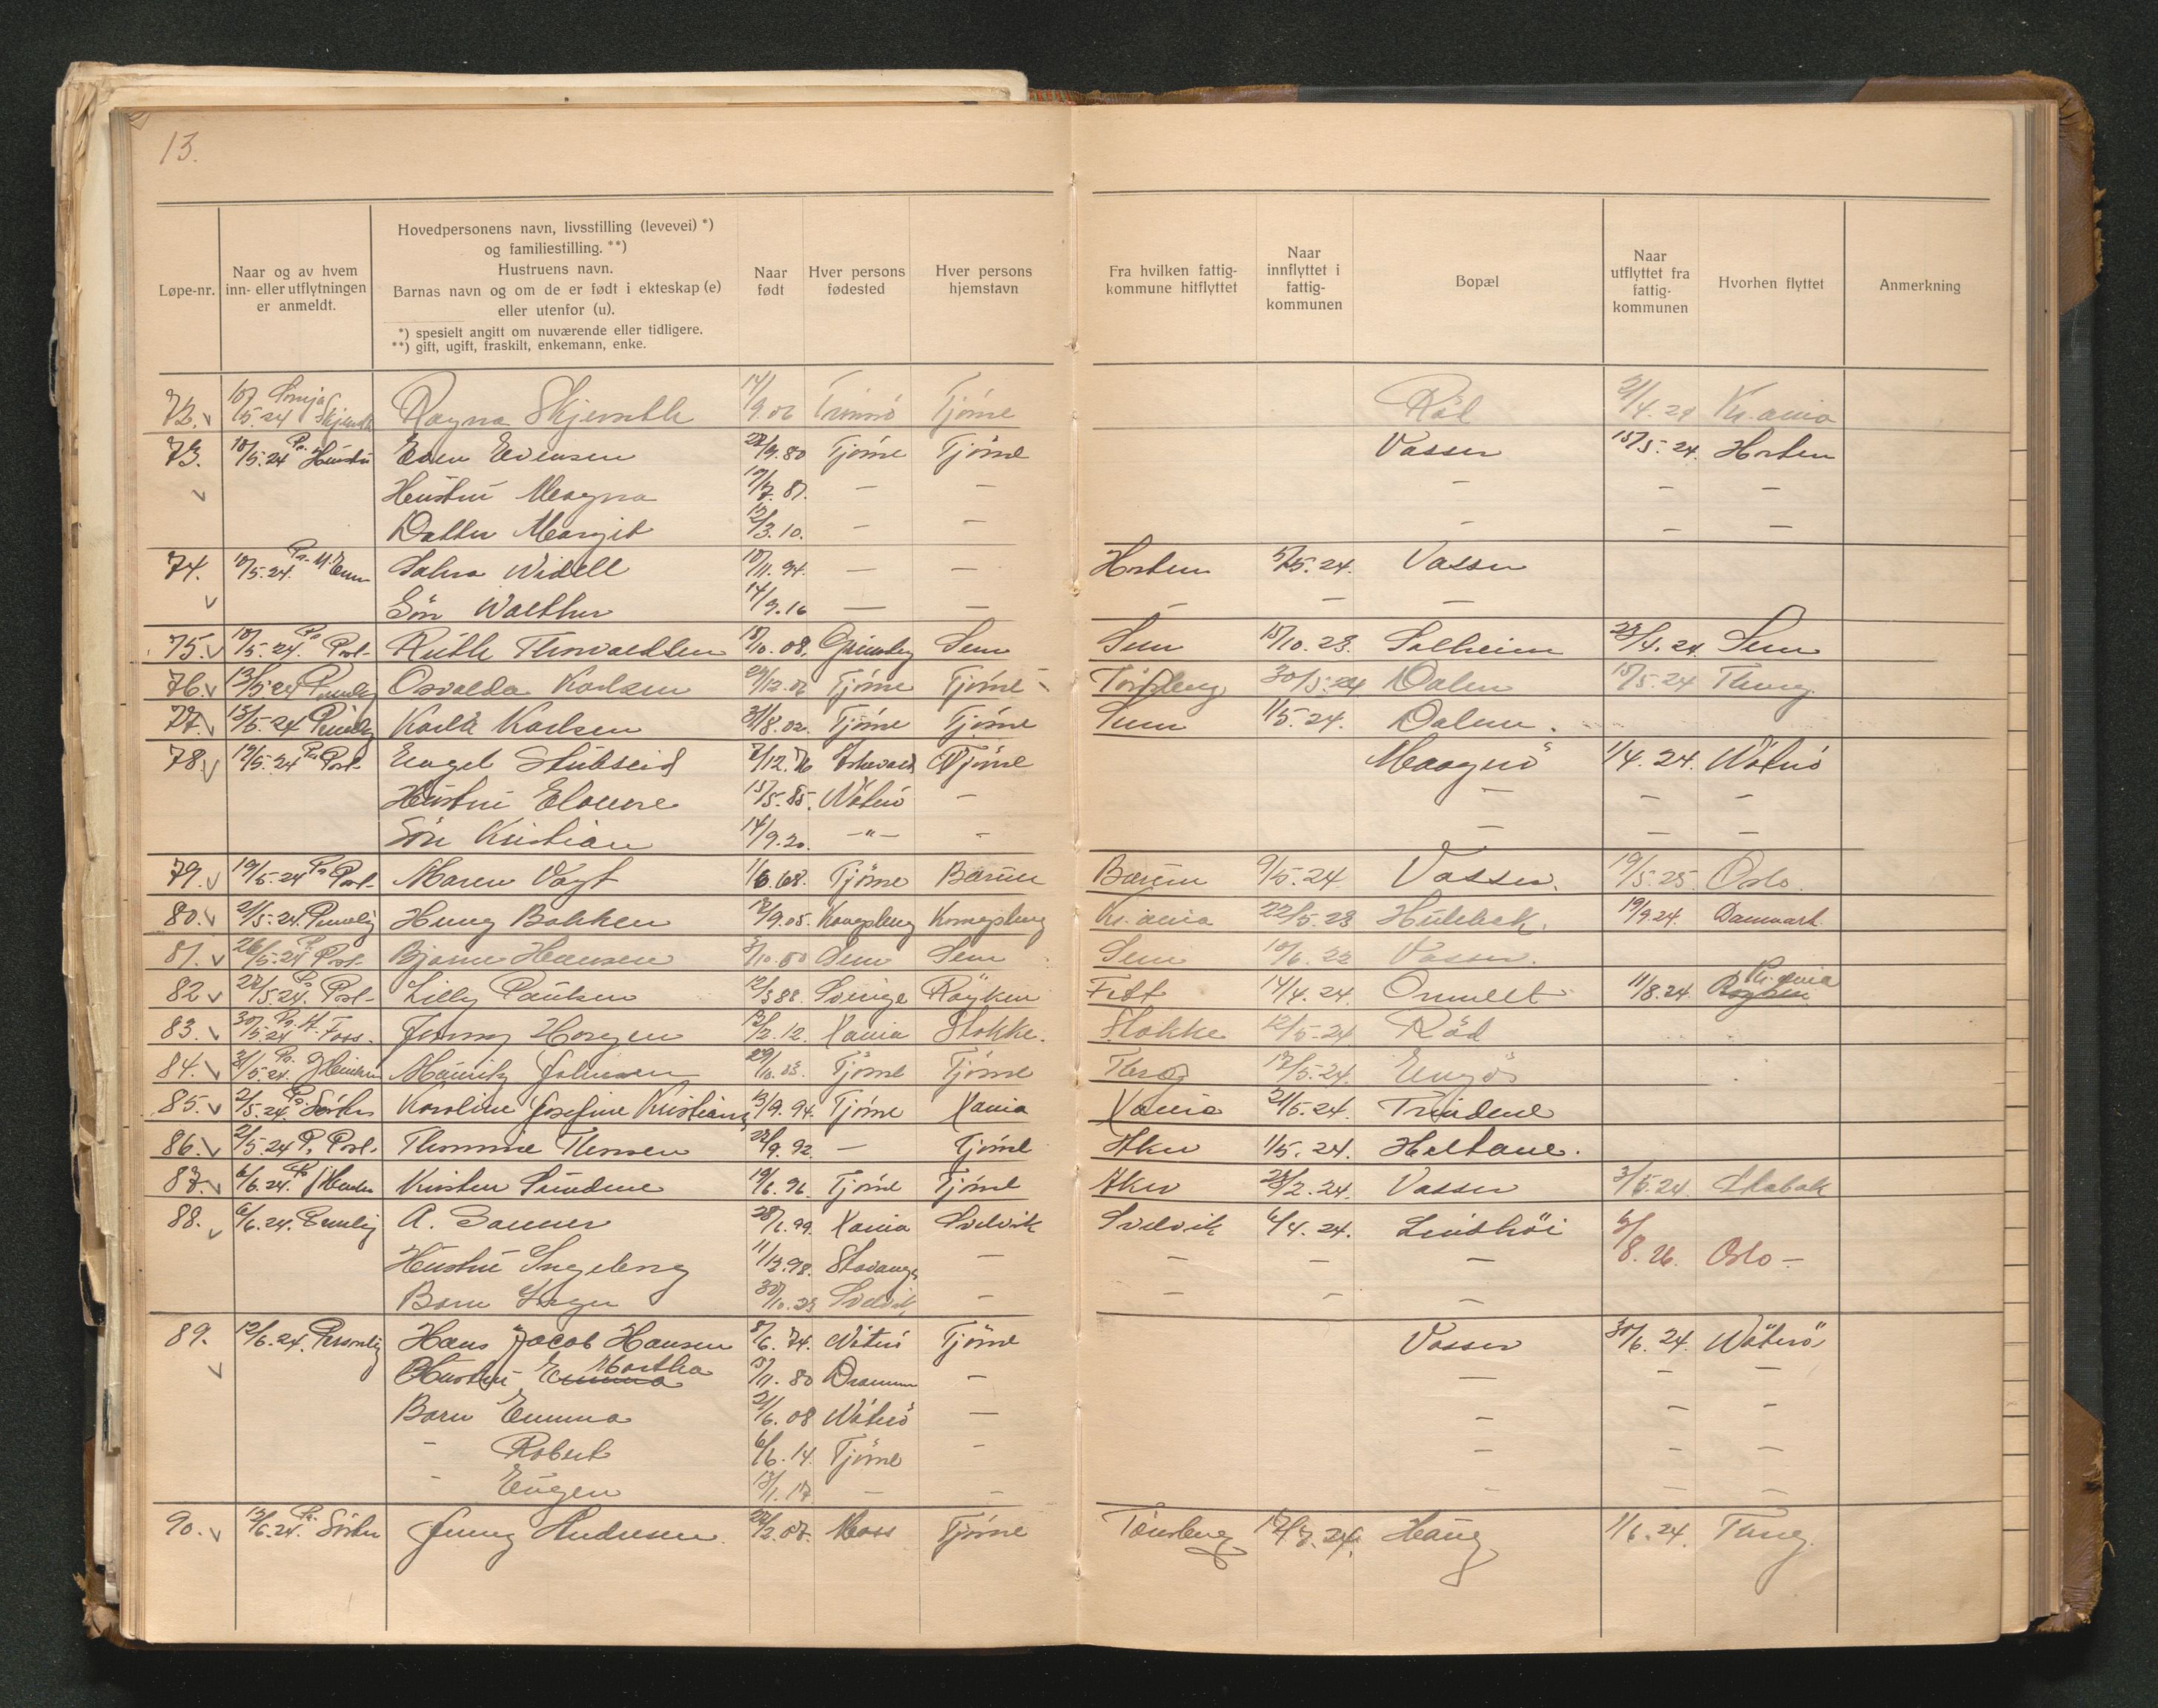 13.
Løpe-nr. | Naar og av hvem inn- eller utflytningen er anmeldt. | Hovedpersonens navn, livsstilling (levevei) *) og familiestilling. **) Hustruens navn. Barnas navn og om de er født i ekteskap (e) eller utenfor (u). *) spesielt angitt om nuværende eller tidligere. **) gift, ugift, fraskilt, enkemann, enke. | Naar født | Hver persons fødested | Hver persons hjemstavn | Fra hvilken fattig-kommune hitflyttet | Naar innflyttet i fattig-kommunen | Bopæl | Naar utflyttet fra fattig-kommunen | Hvorhen flyttet | Anmerkning
72. v 10/5.24 Ragna 14/9.06 Tromsö Tjöme Röd 21/4.24 Kr.ania
73. 10/5.24 Pr. Hustru Even Evensen 22/9.80 Tjöme Tjöme Vasser 15/5.24. Horten
v Hustru Magna 17/7.87. — — — — —
Datter Margit 12/3.10. — — — — —
74. 10/5.24. Pr. Salma Widell 10/11.94. — — Horten 5/5.24. Vasser
v Sön Walther 14/9.16 — — — — —
75. v 10/5.24. Pr Post- Ruth Thorvaldsen 18/10.08. Grimsby Sem Sem 15/10.23. Solheim 23/4.24 Sem
76. v 13/5.24 Osvalda Karlsen 29/12.06 Tjöme Tjöme Tönsberg 30/5.24 Dalen 15/5.24 Tbrg.
77. v 13/5.24 Karla Karlsen 31/8.02. Tjöme Tjöme Sem 1/5.24. Dalen.
78. v 19/5.24 Pr. Post- Engel Stubseid 7/12.76 Tjöme Maagerö 1/4.24. Nöterö
Hustru 15/5.85. Nöterö — — — —
Sön Kristian 14/9.20. —"— — — — —
79. v 19/5.24 Pr Post- Maren Vogt 1/6.68. Tjöme Bærum Bærum 9/5.24 Vasser. 19/5.25. Oslo.
80. v 21/5.24. Henny Bakken 12/9.05. Kongsberg Kongsberg Kr.ania 22/5.23 Hulebak. 19/9.24. Danmark
81. v 26/5.24 Pr. Post- Bjarne Hansen 3/10.50 Sem Sem Sem 10/6.22 Vasser.
82 v 27/5.24. Pr. Post- Lilly Paulsen 12/3.88. Sverige Röyken Fet 14/4.24. Ormelet 11/8.24 Kr.ania
83. v 30/5.24 Pr. K. Foss. Jenny Horgen 12/2.12. Xania Stokke. Stokke 12/5.24 Röd
84. v 31/5.24. Pr. Mauritz Johnsen 29/10.03. Tjöme Tjöme Tbrg 17/5.24. Engö
85. v 2/5.24. Pr. Söster Karoline Josefine Kristians 13/9.94. Tjöme Xania Xania 21/5.24. Grindene
86. v 2/5.24 P. Post. Thommine Thorsen 22/9.92. — Tjöme Aker 1/5.24. Holtane.
87. v 6/6.24. Pr Kirsten Sundene 19/6.96. Tjöme Tjöme Aker 28/2.24. Vasser 3/5.24 Stabæk
88. v 6/6.24. A. Sanner 28/1.99. Xania Svelvik Svelvik 6/4.24. Lindhöi 6/8.26. Oslo –
Hustru Ingeborg 11/12.98. Stavanger — — — —
Barn Inger 30/10.23 Svelvik — — — —
89. 12/6.24. Personlig Hans Jacob Hansen 8/6.74. Nöterö Tjöme Vasser 30/6.24. Nöterö
v Hustru Emma Martha 13/11.80 Drammen — — — —
Barn Emma 21/6.08 Nöterö — — — —
- Robert 6/6.14. Tjöme — — — —
- Eugen 13/1.17. — — — — —
90. v 12/6.24. Pr. Söster Jenny Andresen. 22/2.07. Moss Tjöme Tönsberg 17/3.24. Haug 1/6.24. Tbrg.